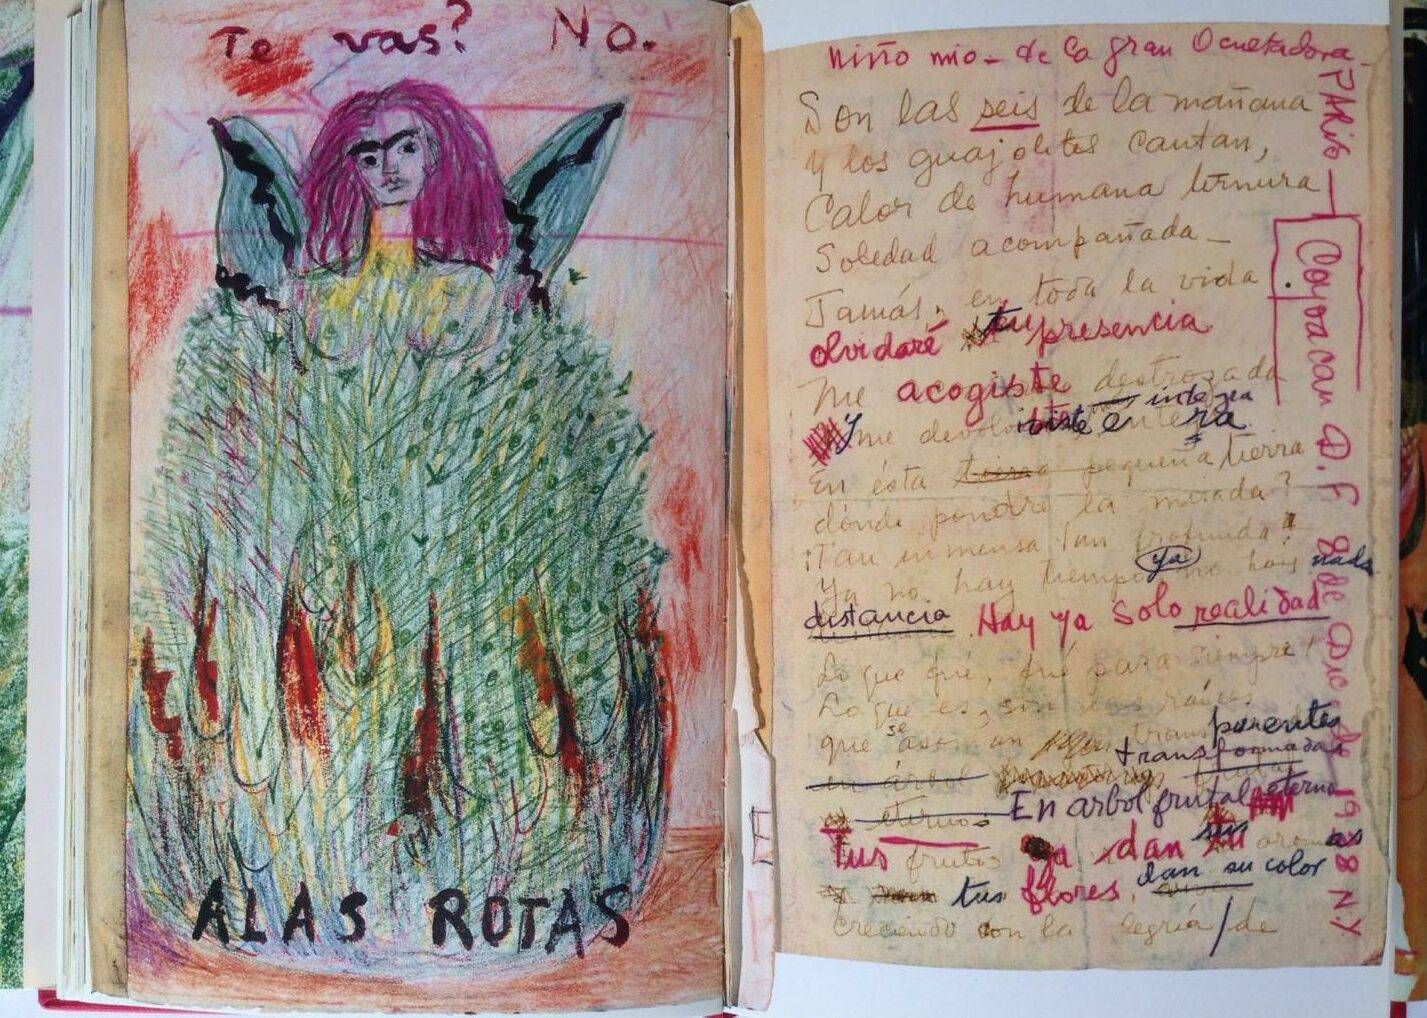 Te vas? No.
ALAS ROTAS
Niño mio - de la gran Ocultadora -
Son las seis de la mañana
y los guajolotes cantan,
Calor de humana ternura
Soledad acompañada -
Jamás, en toda la vida
olvidaré tu presencia
Me acogiste destrozada
y me devolviste íntegra
entera
En ésta pequeña tierra
dónde pondré la mirada?
¡Tan inmensa tan profunda!
Ya no hay tiempo, ya no hay nada
distancia Hay ya solo realidad
Lo que fué, fué para siempre!
Lo que es, son las raíces
que se asoman transparentes
transformadas
en árbol
eterno.
En arbol frutal eterno
Tus frutas ya dan sus aromas
tus flores dan su color
creciendo con la alegría de
PARIS - Coyoacan D.F. 8 de Dic de 1938 NY